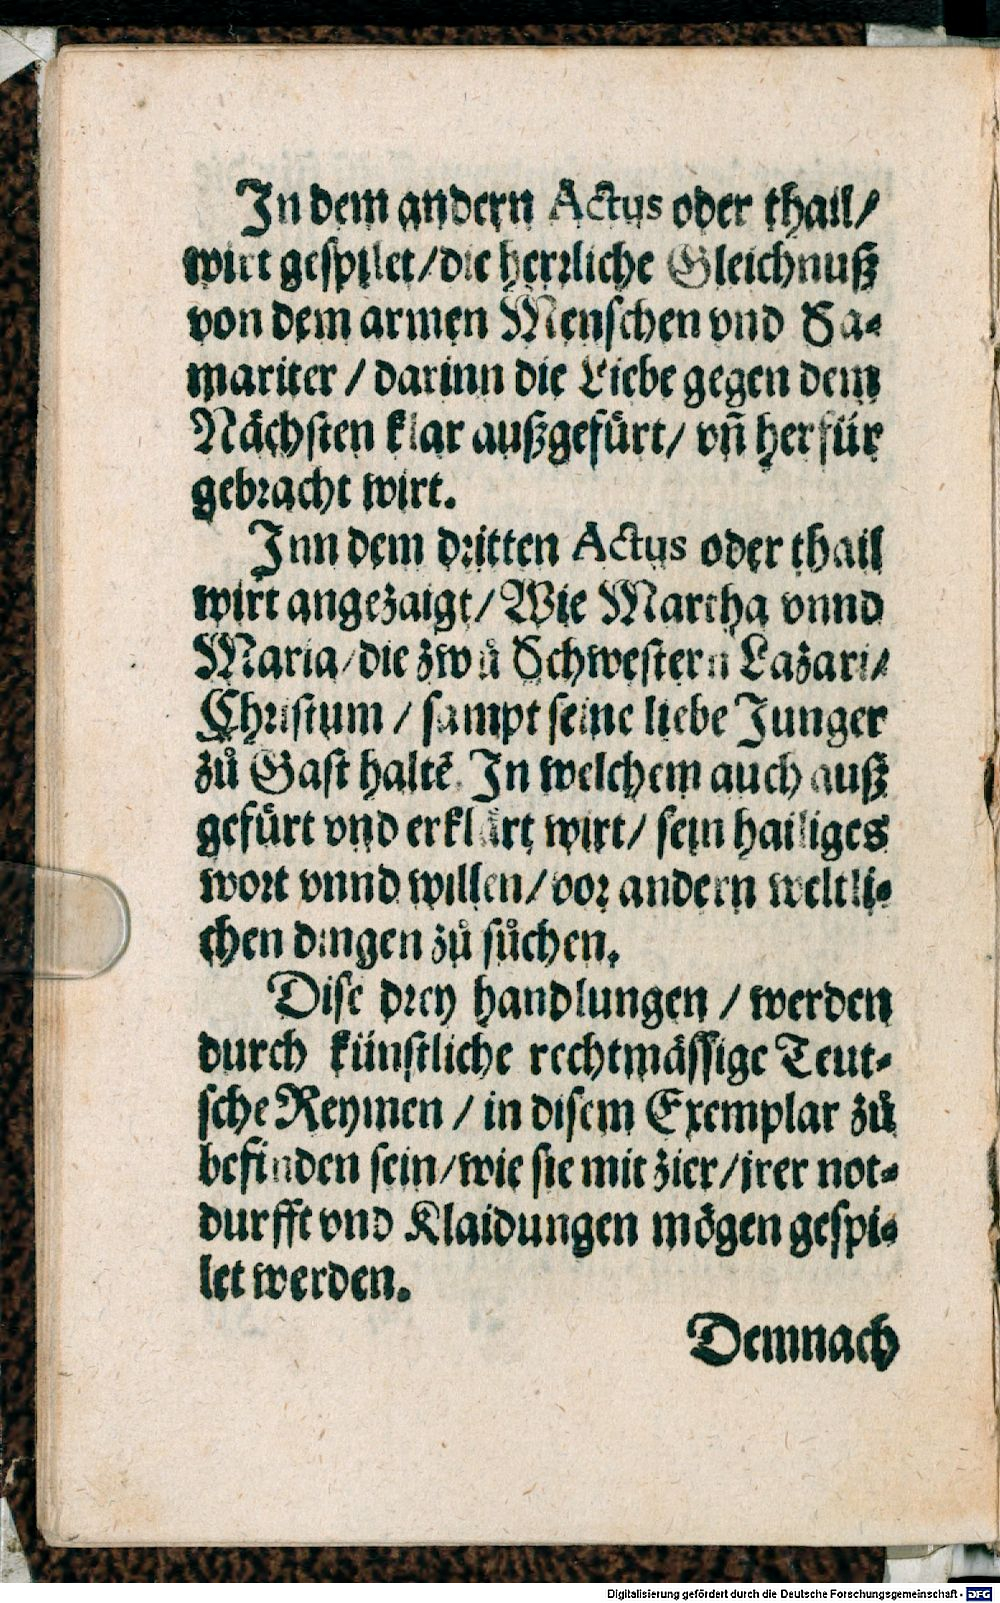 In dem andern Actus oder thail/
wirt gespilet/die herrliche Gleichnuß
von dem armen Menschen vnd Sa-
mariter / darinn die Liebe gegen dem
Nächsten klar außgefürt/ vñ herfür
gebracht wirt.
Inn dem dritten Actus oder thail
wirt angezaigt/ Wie Martha vnnd
Maria/die zwů Schwestern Lazari/
Christum / sampt seine liebe Junger
zů Gast haltē. In welchem auch auß
gefürt vnd erklärt wirt/ sein hailiges
wort vnnd willen/vor andern weltli-
chen dingen zů sůchen.
Dise drey handlungen / werden
durch künstliche rechtmässige Teut-
sche Reymen / in disem Exemplar zů
befinden sein/wie sie mit zier/jrer not-
durfft vnd Klaidungen mögen gespi-
let werden.
Demnach
Digitalisierung gefördert durch die Deutsche Forschungsgemeinschaft - DFG